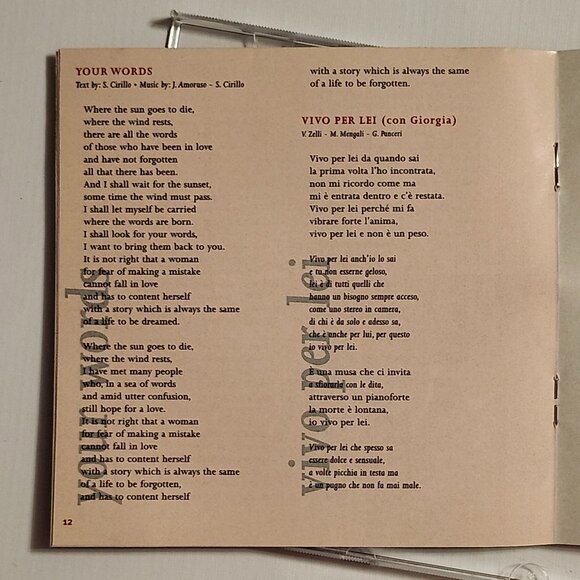 YOUR WORDS
Text by: S. Cirillo • Music by: J. Amoruso ~ S. Cirillo
Where the sun goes to die,
where the wind rests,
there are all the words
of those who have been in love
and have not forgotten
all that there has been.
And I shall wait for the sunset,
some time the wind must pass.
I shall let myself be carried
where the words are born.
I shall look for your words,
I want to bring them back to you.
It is not right that a woman
for fear of making a mistake
cannot fall in love
and has to content herself
with a story which is always the same
of a life to be dreamed.
Where the sun goes to die,
where the wind rests,
I have met many people
who, in a sea of words
and amid utter confusion,
still hope for a love.
It is not right that a woman
for fear of making a mistake
cannot fall in love
and has to content herself
with a story which is always the same
of a life to be forgotten,
and has to content herself
your words
12
with a story which is always the same
of a life to be forgotten.
VIVO PER LEI (con Giorgia)
V. Zelli - M. Mengali - G. Panceri
Vivo per lei da quando sai
la prima volta l'ho incontrata,
non mi ricordo come ma
mi è entrata dentro e c'è restata.
Vivo per lei perché mi fa
vibrare forte l'anima,
vivo per lei e non è un peso.
Vivo per lei anch'io lo sai
e tu non esserne geloso,
lei è di tutti quelli che
hanno un bisogno sempre acceso,
come uno stereo in camera,
di chi è da solo e adesso sa,
che è anche per lui, per questo
io vivo per lei.
È una musa che ci invita
a sfiorarla con le dita,
attraverso un pianoforte
la morte è lontana,
io vivo per lei.
Vivo per lei che spesso sa
essere dolce e sensuale,
a volte picchia in testa ma
è un pugno che non fa mai male.
vivo per lei